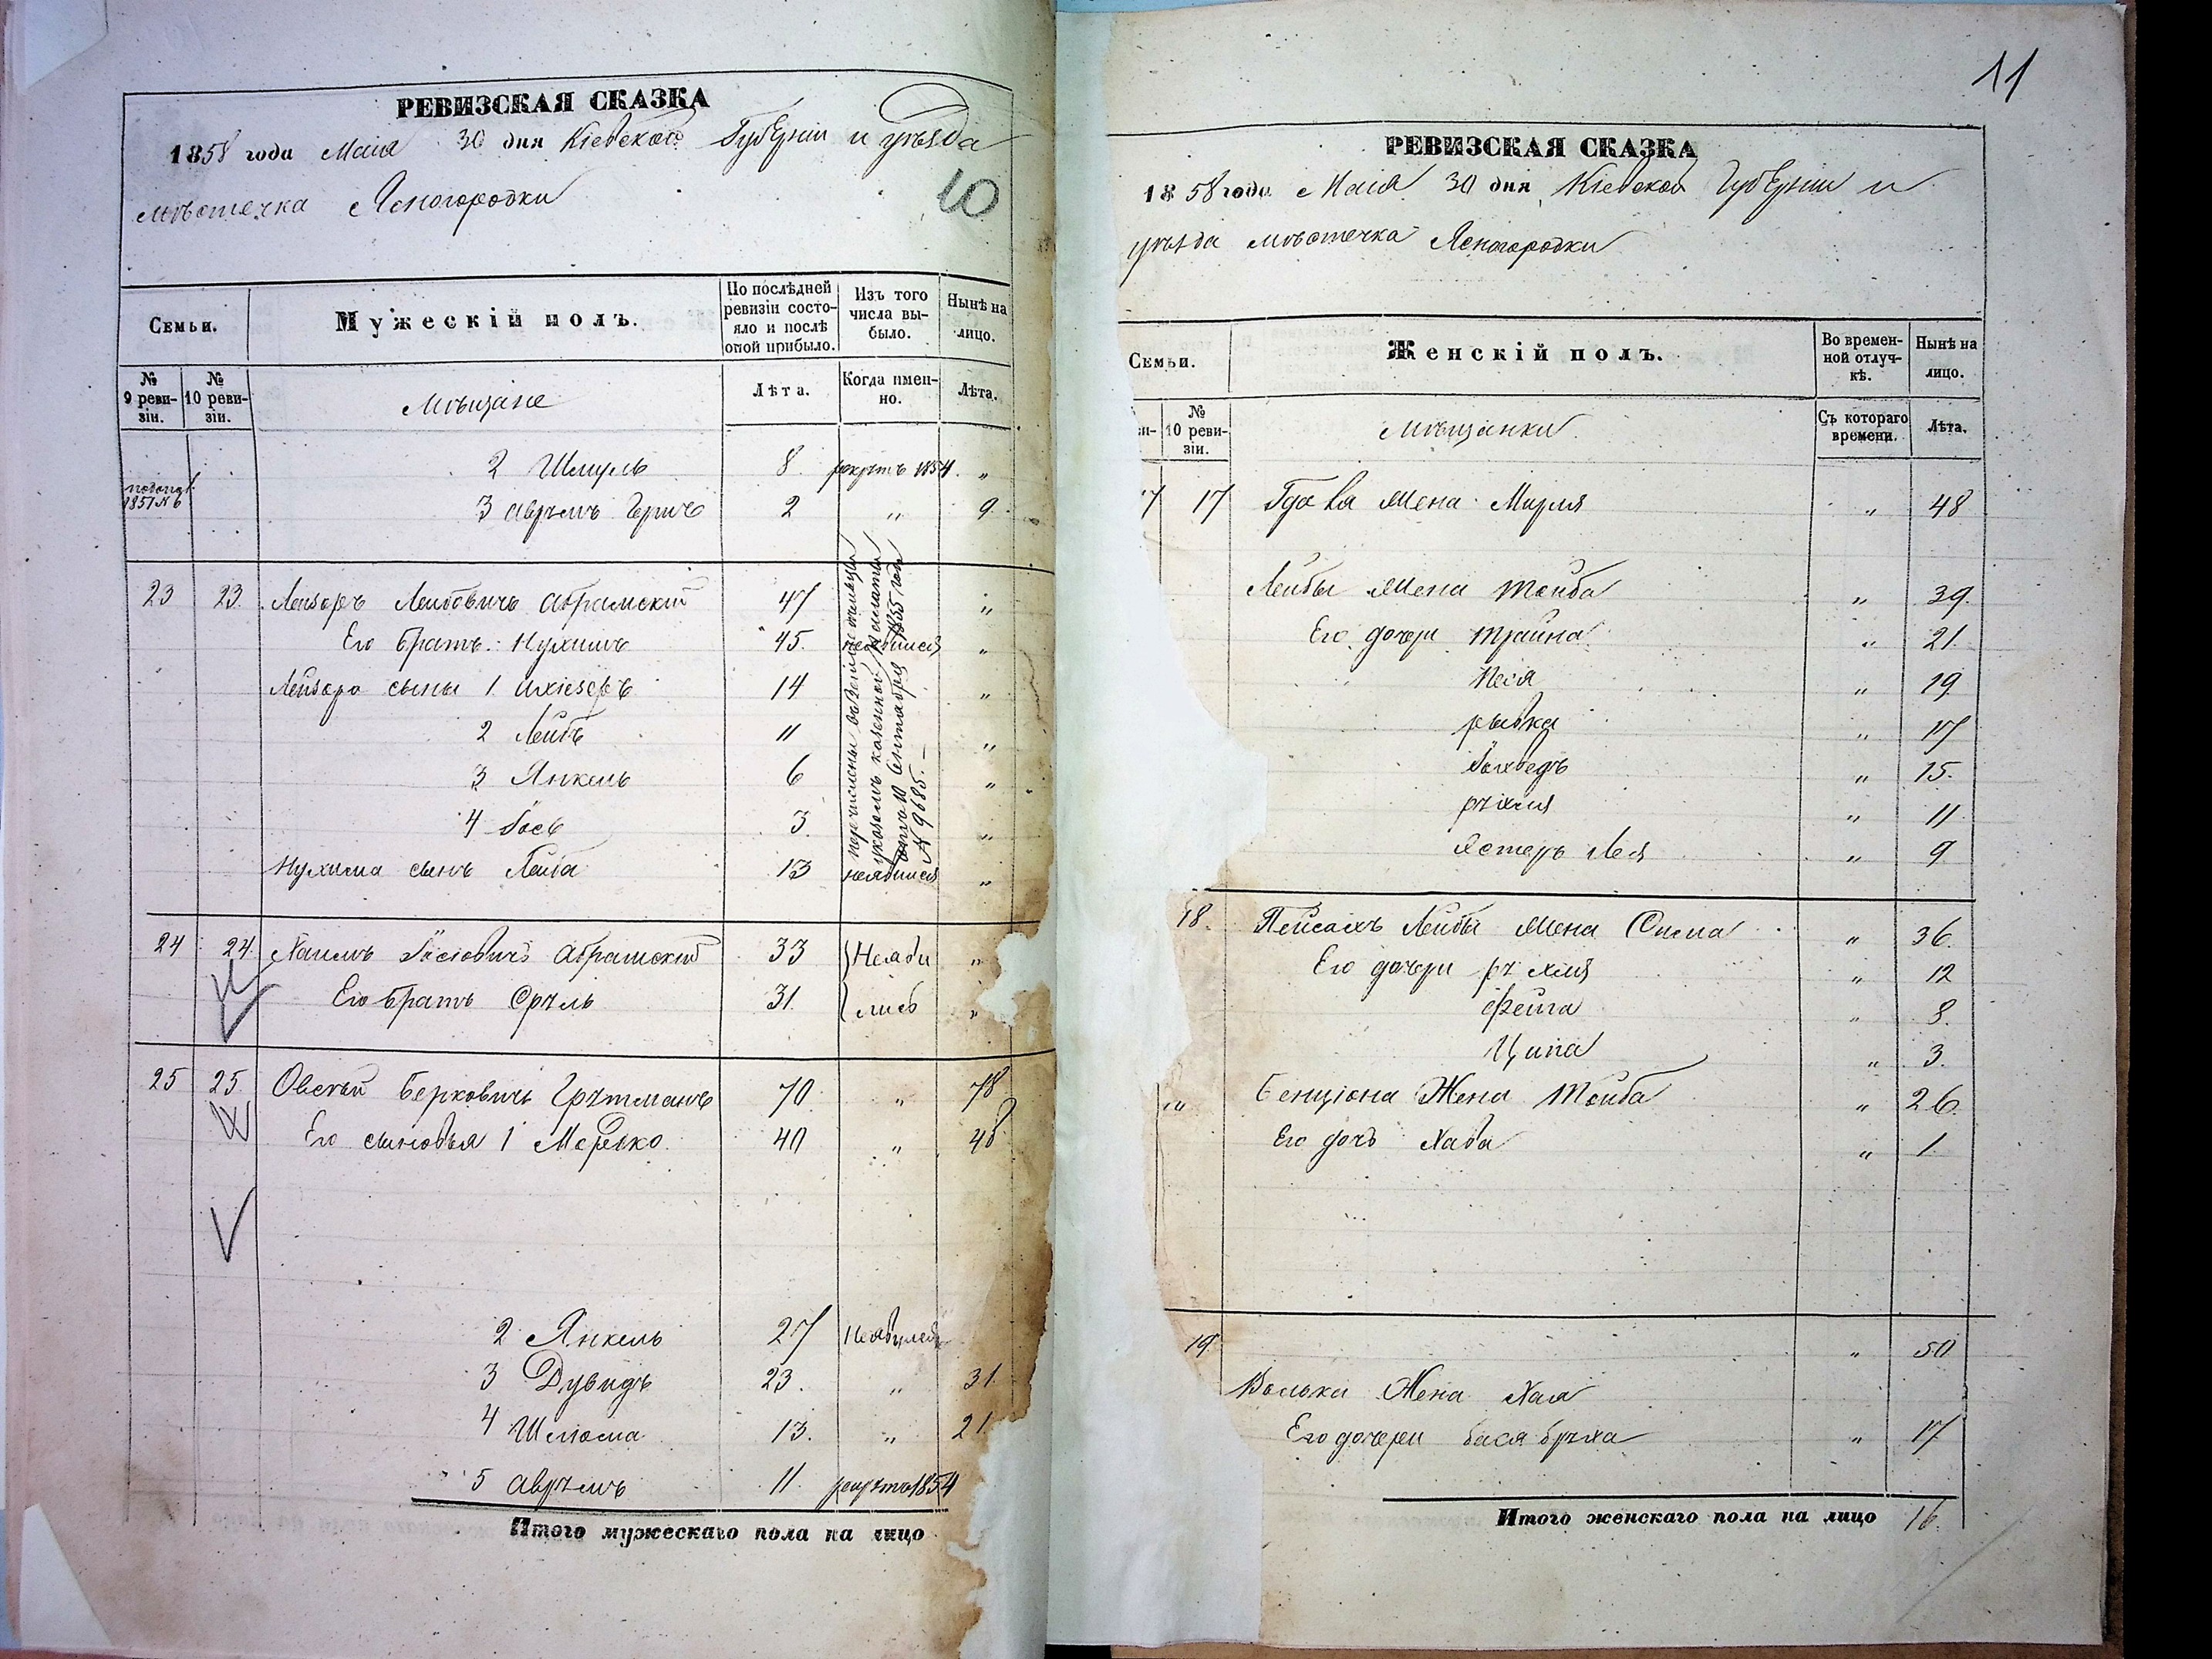 РЕВИЗСКАЯ СКАЗКА
1858 года Маія 30 дня Кіевской Губерніи и уѣзда
мѣстечка Ясногородки
10
Семьи.
Мужескій полъ.
По послѣдней ревизіи состояло и послѣ оной прибыло.
Изъ того числа выбыло.
Нынѣ на лицо.
№ 9 ревизіи.
№ 10 ревизіи.
Мѣщане
Лѣта.
Когда именно.
Лѣта.
2 Шмуль 8 рекрутъ 1854. "
1851 №6 3 Аврумъ Герш 2 " 9
23 23 Лейзоръ Лейбовичъ Абрамскій 47 "
Его братъ Нухимъ 45. неявился "
Лейзора сыны 1. 14 "
2 Лейбъ 11 "
3 Янкель 6 "
4 Іось 3. "
Нухима сынъ Лейба 13 неявился "
перечислены въ
указомъ казенной палаты
отъ 10 Сентября 1855 года
№ 9685. —
24 24 Хаимъ Іосіовичъ Абрамскій 33 Неяви "
Его братъ Сруль 31. лись "
25 25 Овсѣй Берковичъ 70 " 78
Его сыновья 1 Мошко 40 " 48
2 Янкель 27 Неявился
3 Дувидъ 23. " 31.
4 Шлюма 13. " 21.
5 Аврумъ 11. рекрутъ 1854
Итого мужескаго пола на лицо
11
РЕВИЗСКАЯ СКАЗКА
1858 года Маія 30 дня Кіевской Губерніи и
уѣзда мѣстечка Ясногородки
Семьи.
Женскій полъ.
Во временной отлучкѣ.
Нынѣ на лицо.
№ 10 ревизіи.
Мѣщанки
Съ котораго времени.
Лѣта.
17 Жена Маріям " 48
Лейбы Жена Тойба " 39.
Его дочери Трайна " 21.
Песя " 19
рывка " 17
" 15.
рухля " 11
Эстеръ Лея " 9
18. Пейсахъ Лейбы Жена Сима " 36.
Его дочери рухля " 12
Фейга " 8.
Ципа " 3.
" Бенціона Жена Тойба " 26.
Его дочь Хава " 1.
19 " 50
Волька Жена Хая
Его дочери бася бруха " 17
Итого женскаго пола на лицо 16.